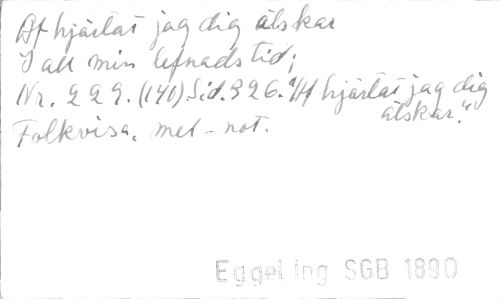 Af hjärtat jag dig älskar
I all min lefnadstid;
Nr. 229. (140) Sid. 326. "Af hjärtat jag dig
älskar."
Folkvisa, mel-not.
Eggeling SGB 1890